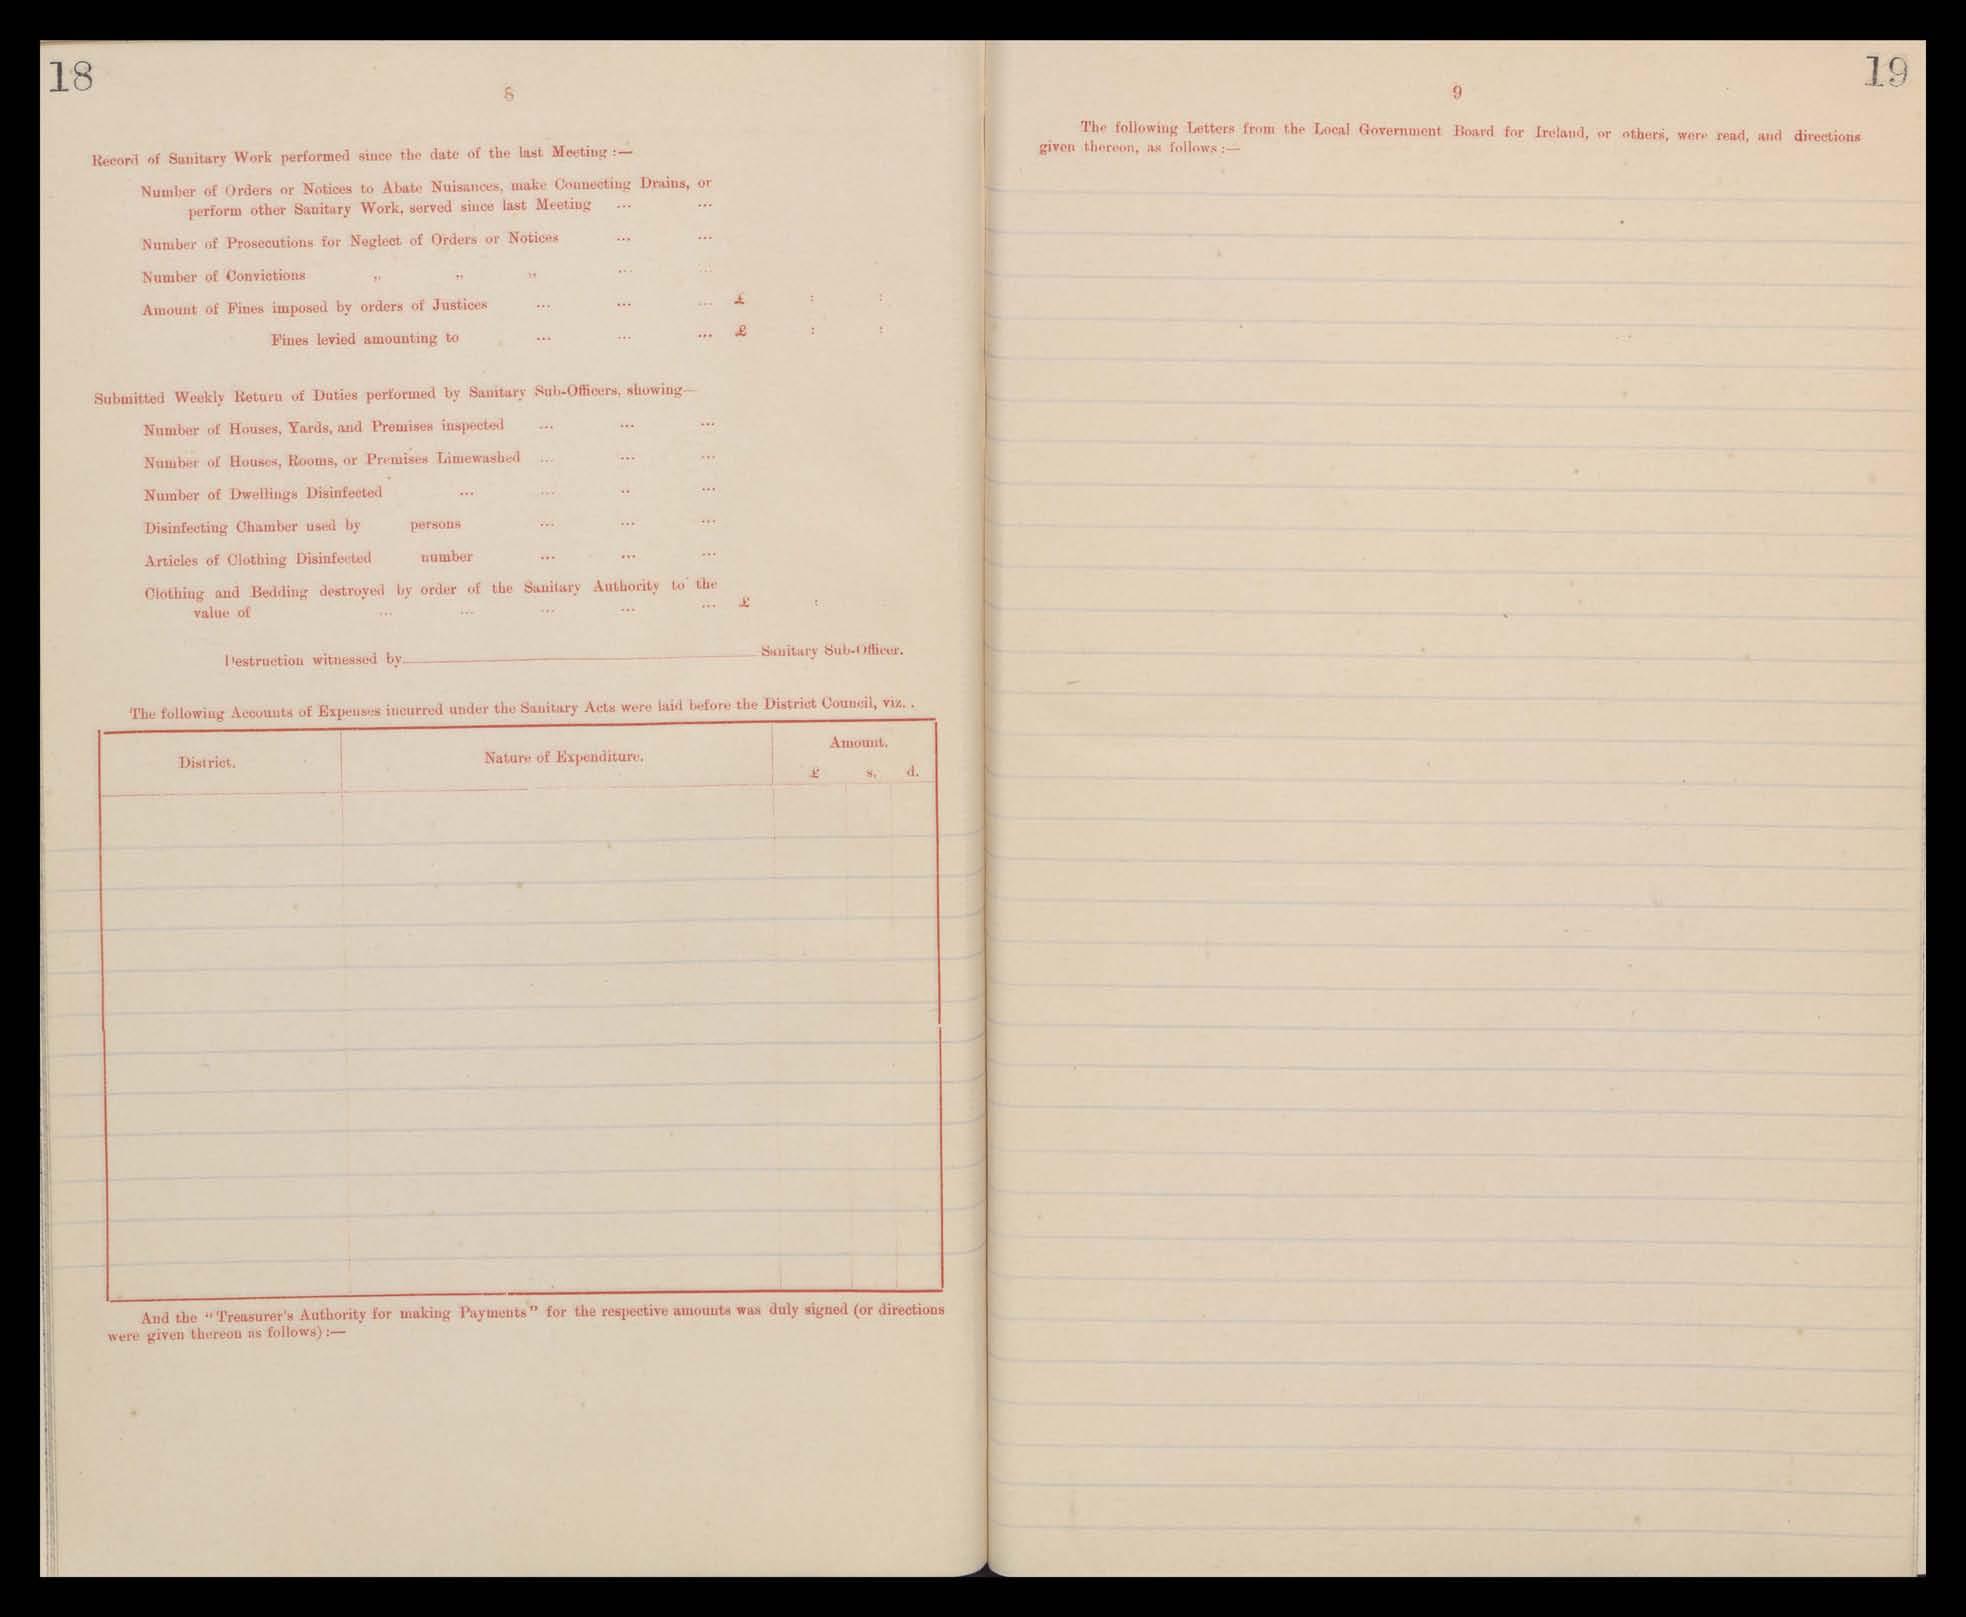 18
8
Record of Sanitary Work performed since the date of the last Meeting :—
Number of Orders or Notices to Abate Nuisances, make Connecting Drains, or
perform other Sanitary Work, served since last Meeting ... ...
Number of Prosecutions for Neglect of Orders or Notices ... ...
Number of Convictions ,, ,, ,, ... ...
Amount of Fines imposed by orders of Justices ... ... ... £ : :
Fines levied amounting to ... ... ... £ : :
Submitted Weekly Return of Duties performed by Sanitary Sub-Officers, showing—
Number of Houses, Yards, and Premises inspected ... ... ...
Number of Houses, Rooms, or Premises Limewashed ... ... ...
Number of Dwellings Disinfected ... ... .. ...
Disinfecting Chamber used by persons ... ... ...
Articles of Clothing Disinfected number ... ... ...
Clothing and Bedding destroyed by order of the Sanitary Authority to the
value of ... ... ... ... ... £ :
Destruction witnessed by Sanitary Sub-Officer.
The following Accounts of Expenses incurred under the Sanitary Acts were laid before the District Council, viz. .
District. Nature of Expenditure. Amount.
£ s. d.
And the "Treasurer's Authority for making Payments" for the respective amounts was duly signed (or directions
were given thereon as follows) :—
19
9
The following Letters from the Local Government Board for Ireland, or others, were read, and directions
given thereon, as follows :—